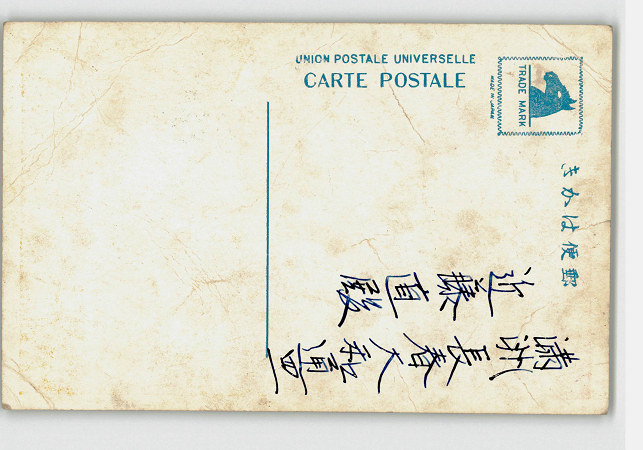 UNION POSTALE UNIVERSELLE
CARTE POSTALE
TRADE MARK
MADE IN JAPAN
郵便はかき
滿洲長春大和通四
近藤直殿